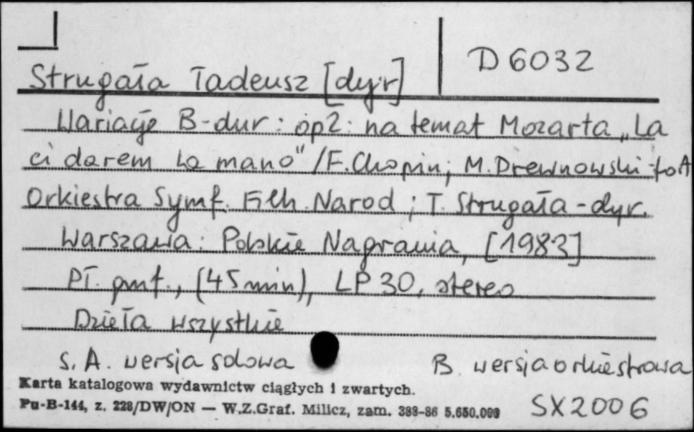 D 6032
Strugała Tadeusz [dyr]
Wariacje B-dur : op2 : na temat Mozarta „La
ci darem la mano" / F. Chopin ; M. Drewnowski - fo
Orkiestra Symf. Filh. Narod ; T. Strugała - dyr.
Warszawa : Polskie Nagrania, [1983]
Pł. gmf., (45 min), LP 30, stereo
Dzieła wszystkie
S. A. wersja solowa B. wersja orkiestrowa
Karta katalogowa wydawnictw ciągłych i zwartych.
Pu-B-144, z. 228/DW/ON — W.Z.Graf. Milicz, zam. 388-86 5.650.000
SX2006